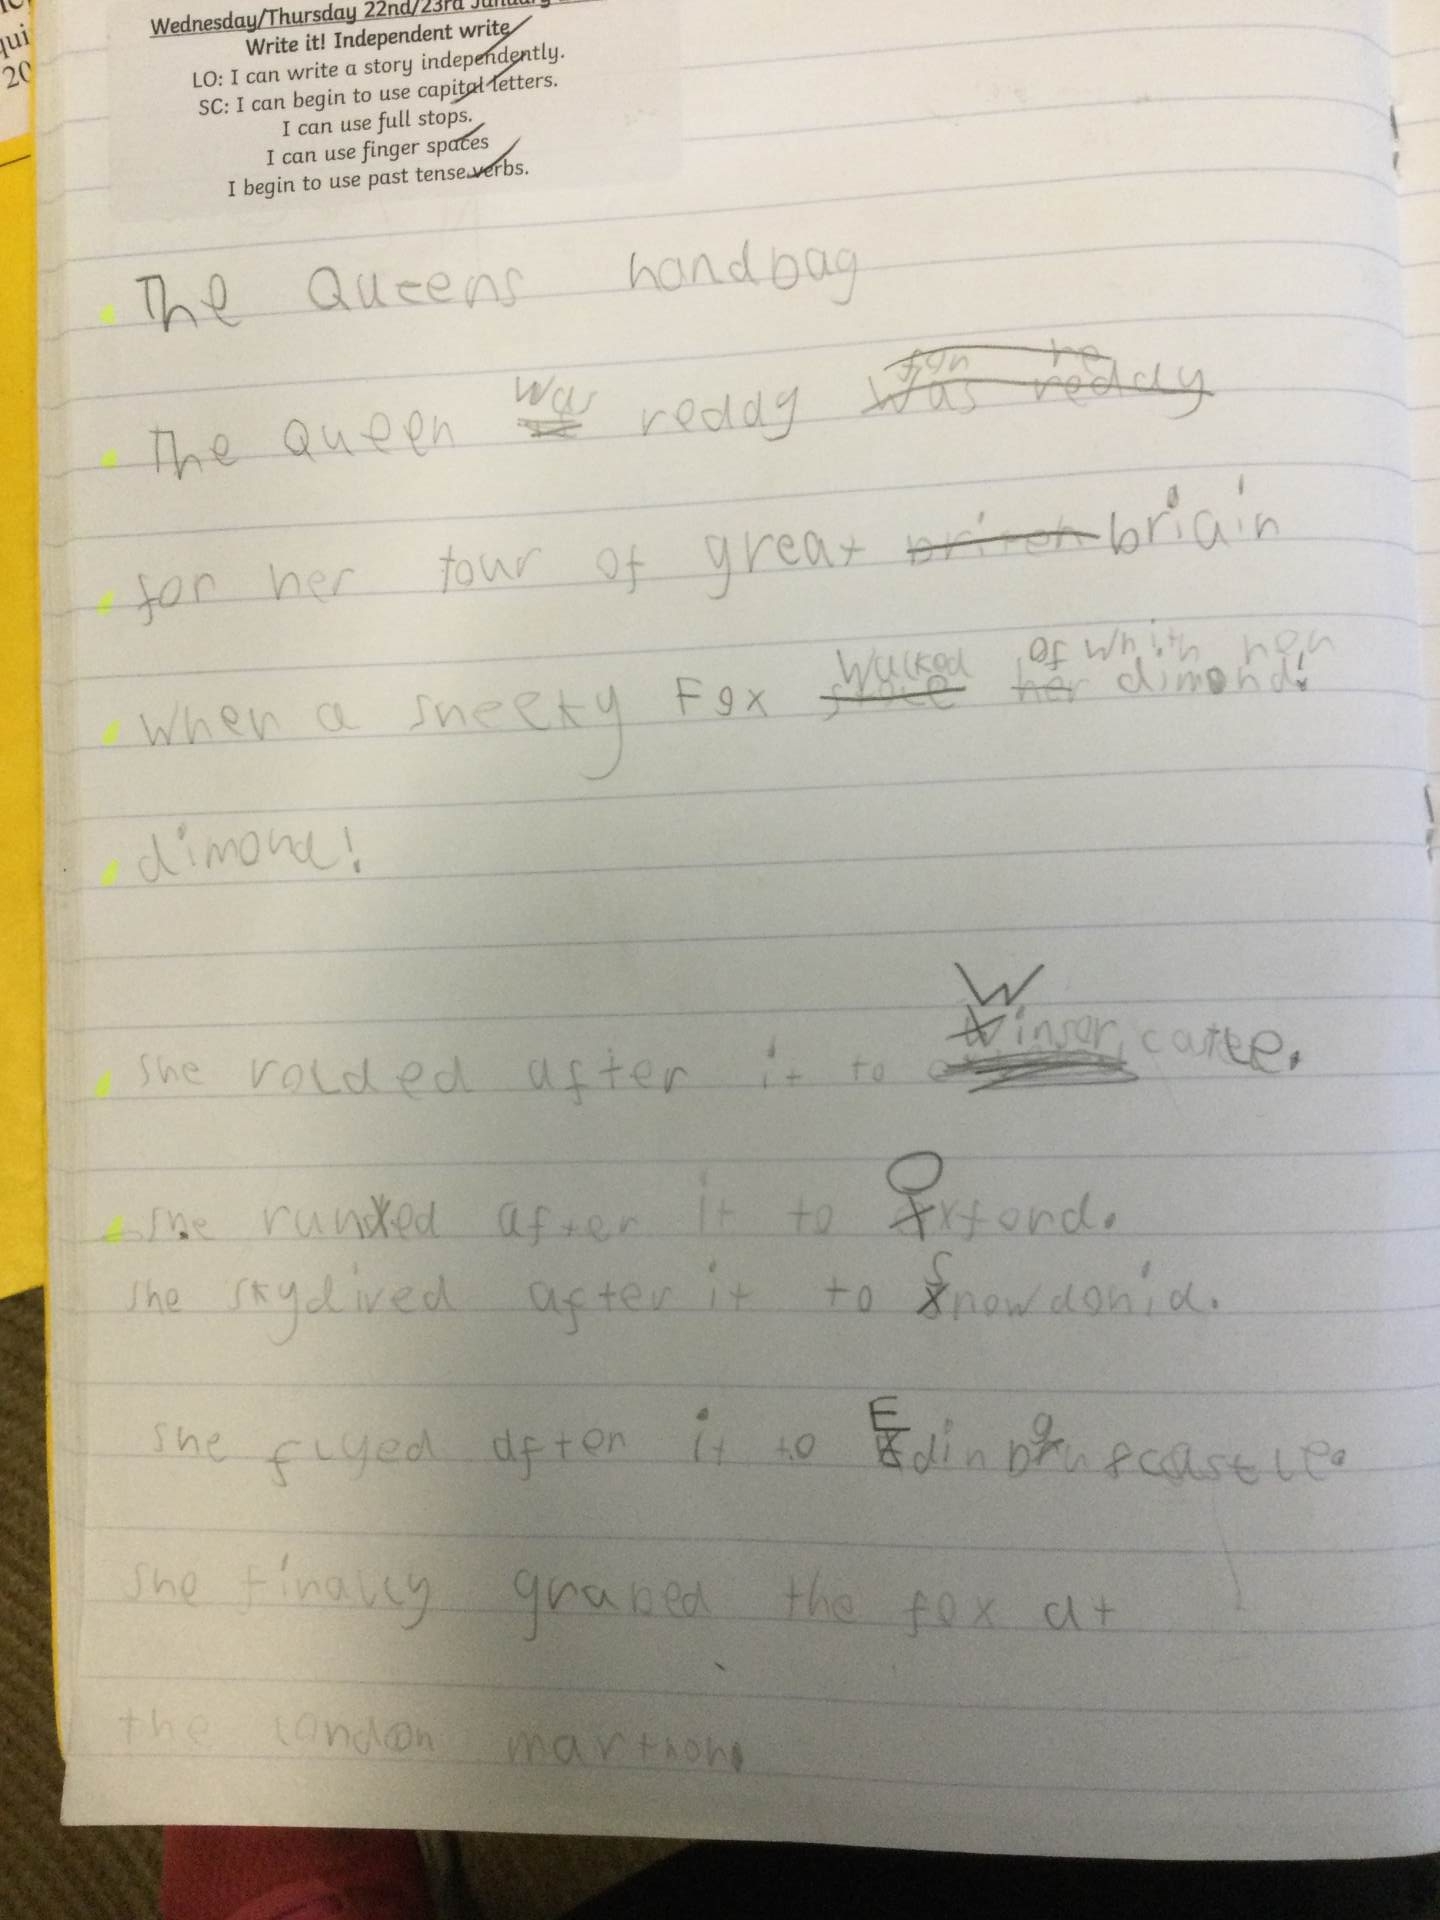 qui
20
Wednesday/Thursday 22nd/23rd January
Write it! Independent write
LO: I can write a story independently.
SC: I can begin to use capital letters.
I can use full stops.
I can use finger spaces
I begin to use past tense verbs.
The Queens handbag
The Queen was reddy was reddy
for her tour of great briain
when a sneeky Fox walked of whith her
her dimond!
dimond!
she rolded after it to Winsor castle.
she runded after it to Oxford.
she skydived after it to Snowdonia.
she flyed after it to Edinbrugh castle.
she finally grabed the fox at
the london marthon.